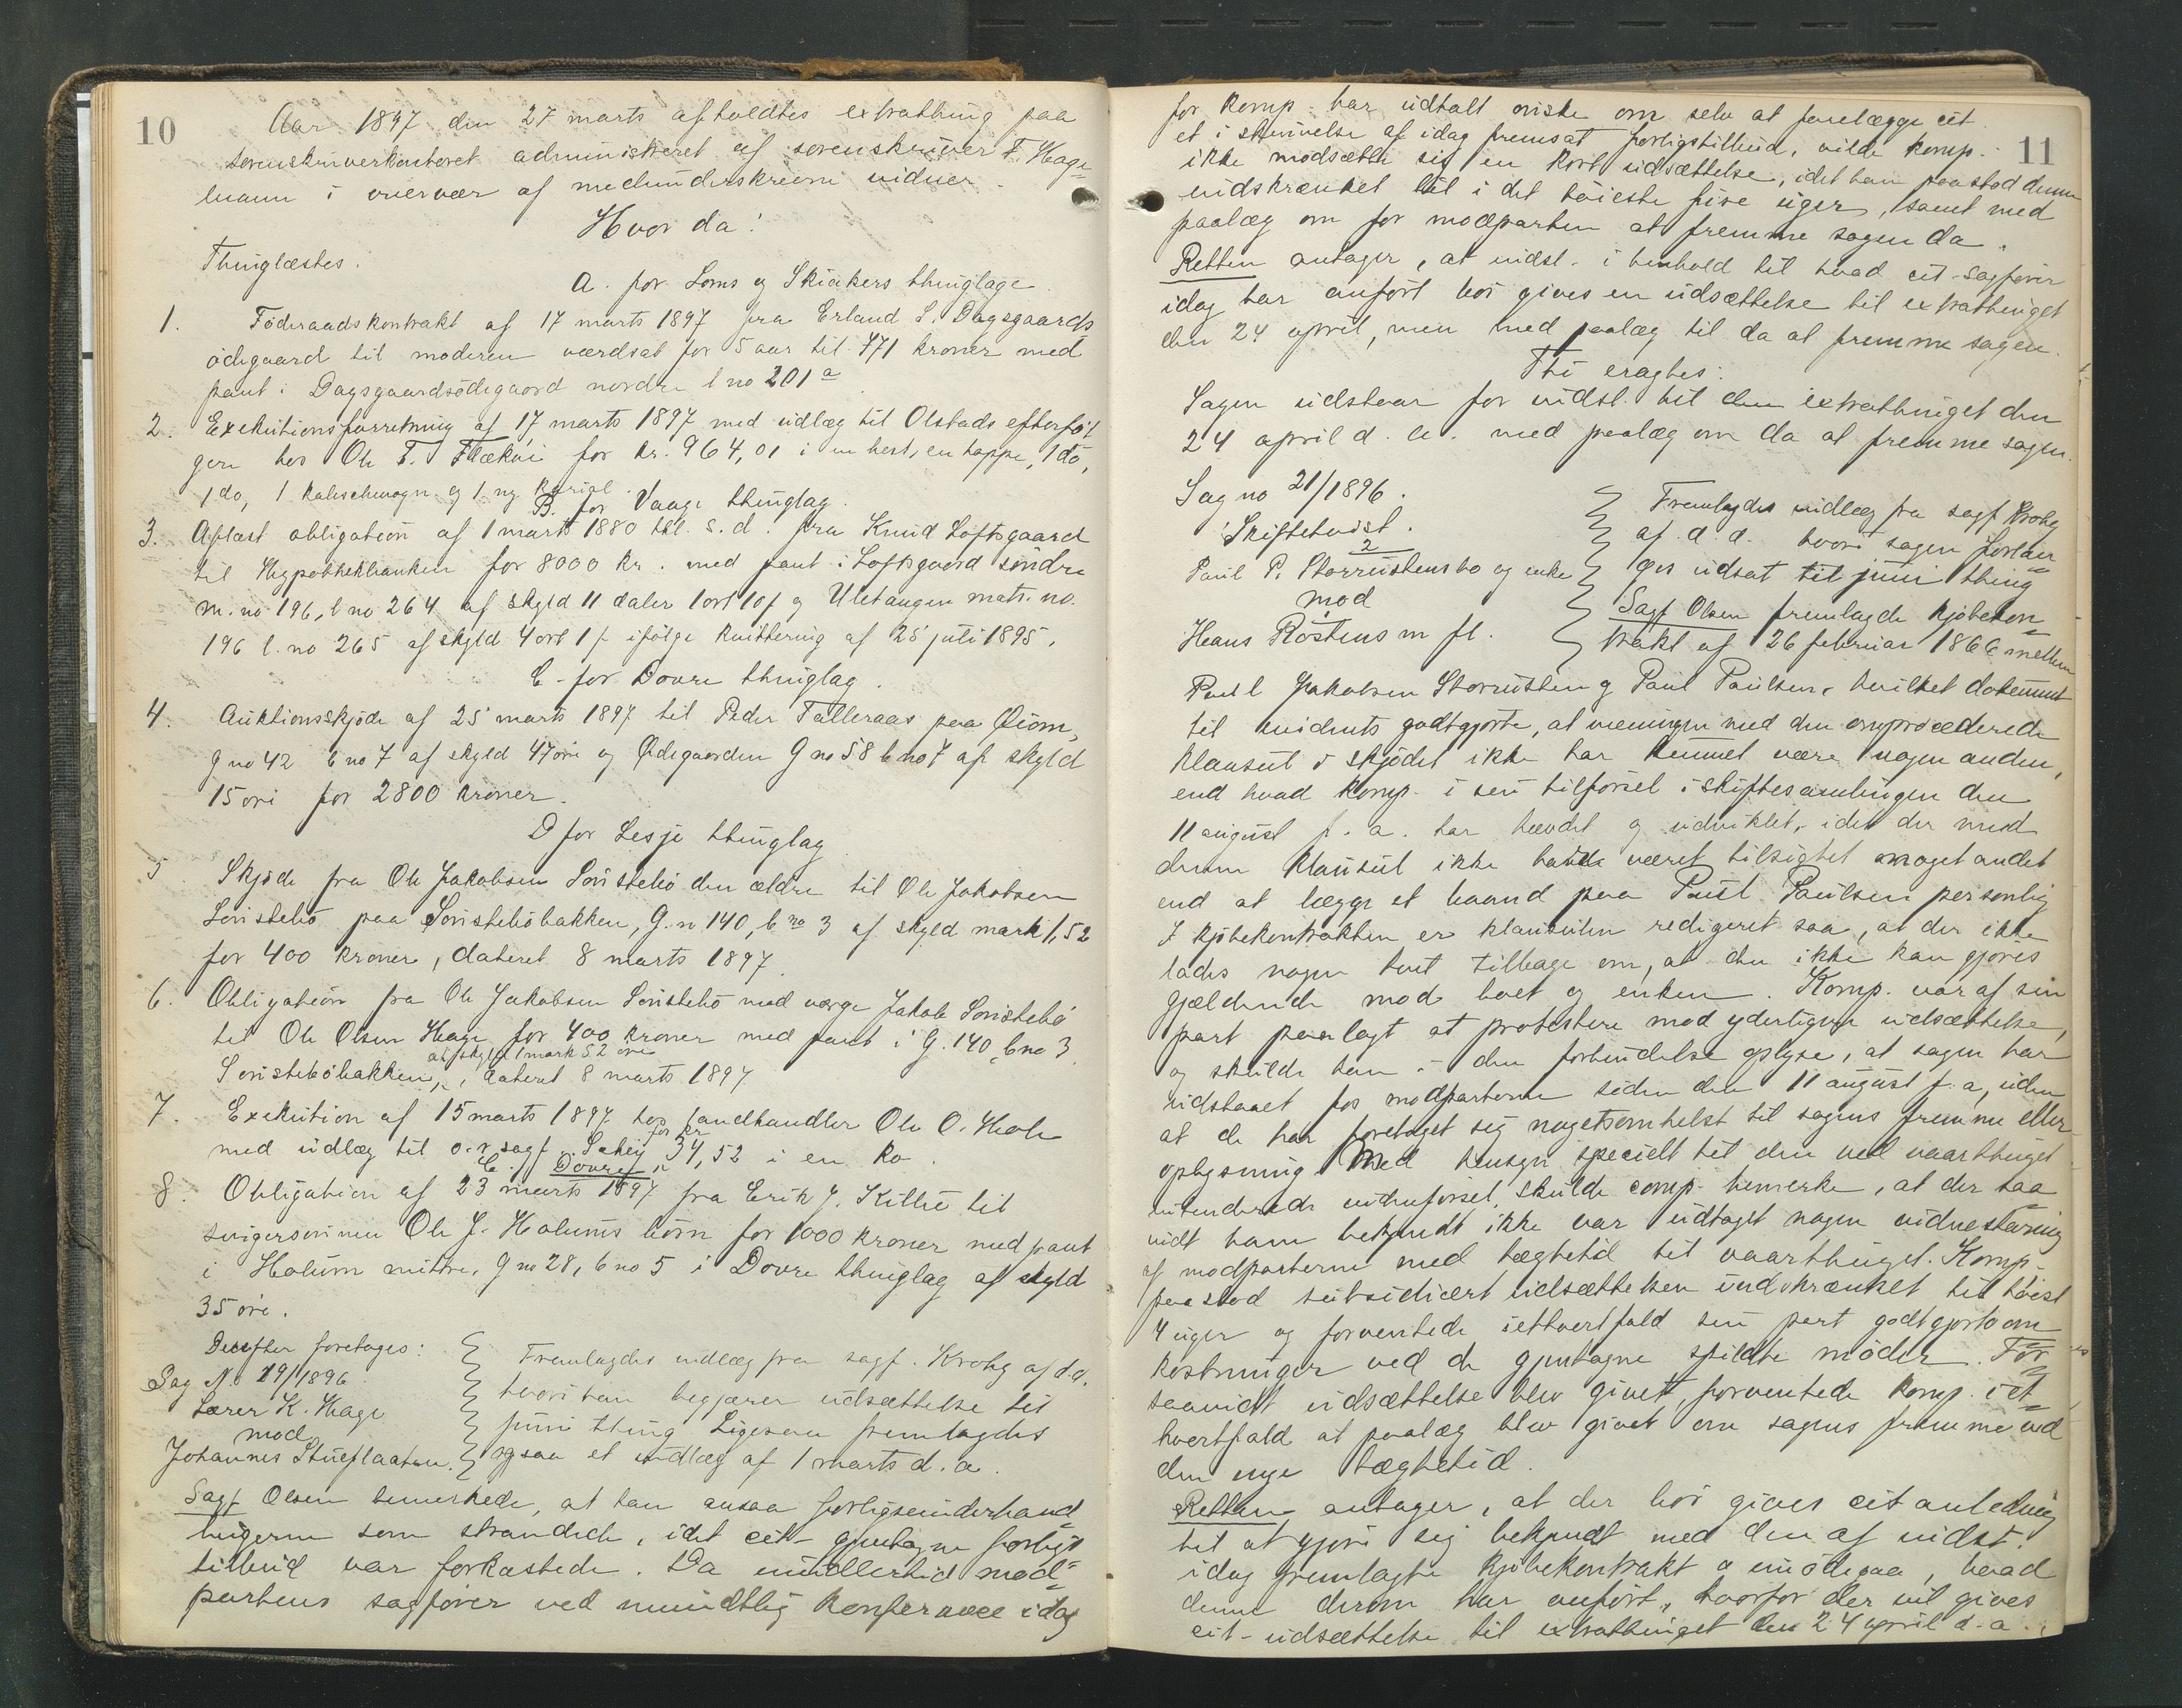 10
Aar 1897 den 27 marts afholdtes extrathing paa
sorenskriverkontoret administreret af sorenskriver F. Hage-
mann i overvær af medunderskrevne vidner.
Hvor da:
Thinglæstes.
A. for Loms og Skiakers thinglage
1. Föderaadskontrakt af 17 marts 1897 fra Erland S. Dagsgaards
ödegaard til moderen værdsat for 5 aar til 471 kroner med
pant i Dagsgaardsödegaard nordre l no 201a
2. Exekutionsforretning af 17 marts 1897 med udlæg til Olstads efterföl
gere hos Ole T. Flæköi for kr. 964,01 i en hest, en hoppe, 1 do,
1 do, 1 kaleschevogn og 1 ny kariol.
B. for Vaage thinglag.
3. Aflæst obligation af 1 marts 1880 thl. s. d. fra Knud Loftsgaard
til Hypothekbanken for 8000 kr. med pant i Loftsgaard söndre
m. no 196, l no 264 af skyld 11 daler 1 ort 10 f og Uletangen matr. no.
196 l. no 265 af skyld 4 ort 1 f ifölge kvittering af 25 juli 1895.
C. for Dovre thinglag.
4. Auktionsskjöde af 25 marts 1897 til Peder Talleraas paa Öiom,
G no 42 b no 7 af skyld 47 öre og Ödegaarden G no 58 b no 7 af skyld
15 öre for 2800 kroner.
D for Lesje thinglag
5 Skjöde fra Ole Jakobsen Söristebö den ældre til Ole Jakobsen
Söristebö paa Söristeböbakken, G. n 140, b no 3 af skyld mark 1,52
for 400 kroner, dateret 8 marts 1897.
6. Obligation fra Ole Jakobsen Söristebö med værge Jakob Söristebö
til Ole Olsen Hage for 400 kroner med pant i G. 140, b no 3
af skyld 1 mark 52 öre
Söristeböbakken, dateret 8 marts 1897
7. Exekution af 15 marts 1897 hos landhandler Ole O. Hole
med udlæg til o. r. sagf. Schej for kr 34,52 i en ko.
C. Dovre
8. Obligation af 23 marts 1897 fra Erik J. Killie til
svigersönnen Ole J. Holums börn for 1000 kroner med pant
i Holum mittre, G no 28, b no 5 i Dovre thinglag af skyld
35 öre.
Derefter foretoges:
Sag No 19/1896
Lærer K. Hage
mod
Johannes Stueflaaten.
Fremlagdes indlæg fra sagf. Krohg af d. d.
hvori han begjærer udsættelse til
juni thing Ligesaa fremlagdes
ogsaa et indlæg af 1 marts d. a.
Sagf Olsen bemerkede, at han ansaa forligsunderhand-
lingerne som strandede, idet cit- gjentagne forligs
tilbud var forkastede. Da imidlertid mod-
partens sagförer ved mundtlig konferance idag
11
for komp. har udtalt önske om selv at forelægge cit
et i skrivelse af idag fremsat forligstilbud, vilde komp.
ikke modsætte sig en kort udsættelse, idet han paastod denne
indskrænket til i det höieste fire uger, samt med
paalæg om for modparten at fremme sagen da.
Retten antager, at indst. i henhold til hvad cit-sagförer
idag har anfört bör gives en udsættelse til extrathinget
den 24 april, men med paalæg til da at fremme sagen.
Thi eragtes:
Sagen udstaar for indst. til den extrathinget den
24 april d. a. med paalæg om da at fremme sagen.
Sag no 21/1896.
Skiftetvist.
2
Paul P. Storrustensbo og enke
mod
Hans Röstens m fl.
Fremlagdes indlæg fra sagf Krohg
af d. d. hvori sagen forlan-
ges udsat til juni thing
Sagf Olsen fremlagde kjöbekon-
trakt af 26 februar 1866 mellem
Paul Jakobsen Storrusten og Paul Paulsen, hvilket dokument
til evidents godtgjorde, at meningen med den omprocederede
klausul i skjödet ikke har kunnet være nogen anden,
end hvad komp. i sin tilförsel i skiftesamlingen den
11 august f. a. har hævdet og udviklet, idet der med
denne klausul ikke havde været tilsigtet noget andet
end at lægge et baand paa Paul Paulsen personlig
I kjöbekontrakten er klausulen redigeret saa, at der ikke
lades nogen tvil tilbage om, at den ikke kan gjöres
gjældende mod boet og enken. Komp. var af sin
part paalagt at protestere mod yderligere udsættelse,
og skulde han i den forbindelse oplyse, at sagen har
udstaaet for modparterne siden den 11 august f. a, uden
at de har foretaget sig nogetsomhelst til sagens fremme eller
oplysning Med hensyn specielt til den ved vaarthinget
intenderede vidneförsel, skulde comp. bemerke, at der saa
vidt ham bekjendt ikke var udtaget nogen vidnestævning
af modparterne med tægtetid til vaarthinget. Komp-
paastod subsidiært udsættelsen indskrænket til höist
4 uger og forventede iethvertfald sin part godtgjort om
kostninger ved de gjentagne spildte möder. For
saavidt udsættelse blev givet, forventede komp. i et-
hvertfald at paalæg blev givet om sagens fremme ved
den nye tægtetid.
Retten antager, at der bör gives cit anledning
til at gjöre sig bekjendt med den af indst.
idag fremlagte kjöbekontrakt og imödegaa, hvad
denne derom har anfört, hvorfor der vil gives
cit-udsættelse til extrathinget den 24 april d. a.